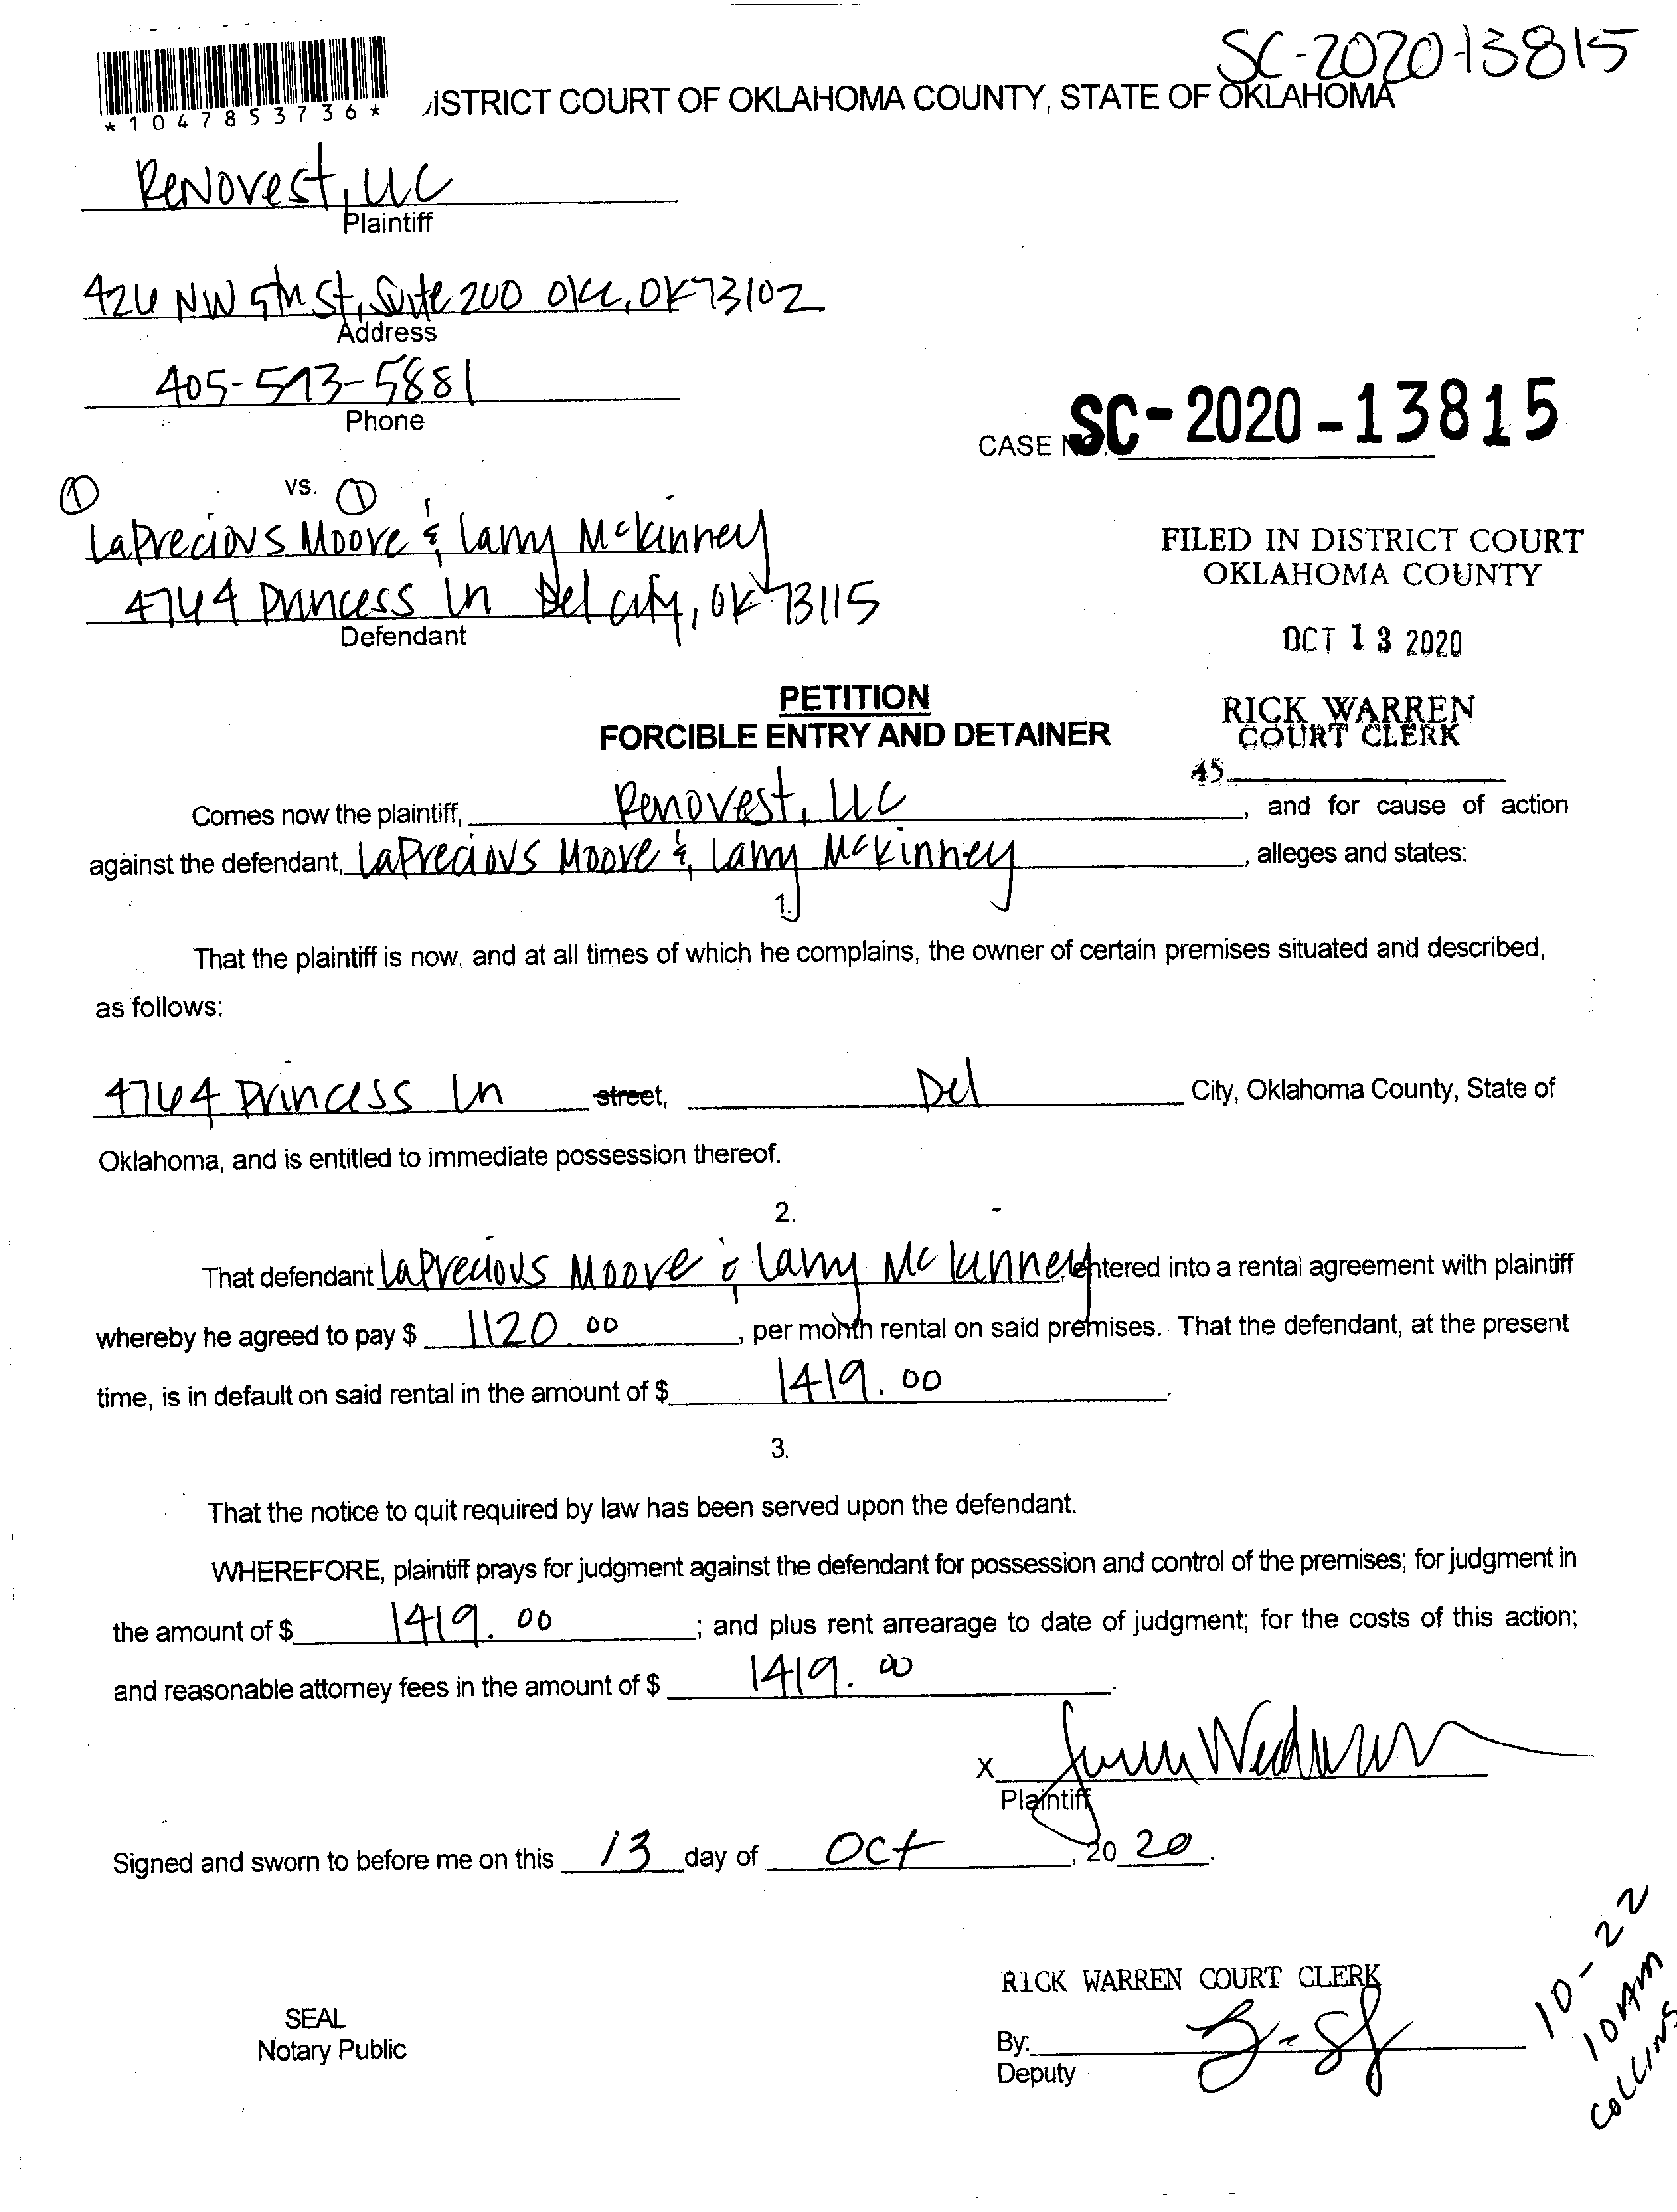 SC-2020-13815
*1047853736*
ISTRICT COURT OF OKLAHOMA COUNTY, STATE OF OKLAHOMA
Renovest, LLC
Plaintiff
426 NW 5th St, Suite 200 OKC, OK 73102
Address
405-593-5881
Phone
CASE NO. SC-2020-13815
① vs. ①
LaPrecious Moore & Larry McKinney
4764 Princess Ln Del City, OK 73115
Defendant
FILED IN DISTRICT COURT
OKLAHOMA COUNTY
OCT 13 2020
RICK WARREN
COURT CLERK
45
PETITION
FORCIBLE ENTRY AND DETAINER
Comes now the plaintiff, Renovest, LLC, and for cause of action
against the defendant, LaPrecious Moore & Larry McKinney, alleges and states:
1.
That the plaintiff is now, and at all times of which he complains, the owner of certain premises situated and described,
as follows:
4764 Princess Ln street, Del City, Oklahoma County, State of
Oklahoma, and is entitled to immediate possession thereof.
2.
That defendant LaPrecious Moore & Larry McKinney, entered into a rental agreement with plaintiff
whereby he agreed to pay $ 1120.00, per month rental on said premises. That the defendant, at the present
time, is in default on said rental in the amount of $ 1419.00.
3.
That the notice to quit required by law has been served upon the defendant.
WHEREFORE, plaintiff prays for judgment against the defendant for possession and control of the premises; for judgment in
the amount of $ 1419.00; and plus rent arrearage to date of judgment; for the costs of this action;
and reasonable attorney fees in the amount of $ 1419.00.
X
Plaintiff
Signed and sworn to before me on this 13 day of Oct, 2020.
10-22
10AM
COLLINS
RICK WARREN COURT CLERK
SEAL
Notary Public
By:
Deputy